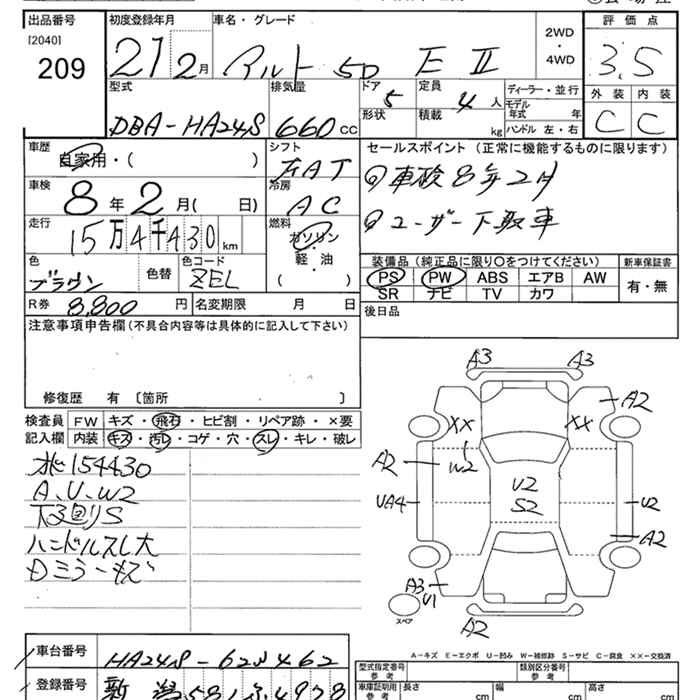 出品番号
[2040]
209
初度登録年月
21 2月
車名・グレード
アルト 5D E II
2WD
・
4WD
評価点
3.5
外装 内装
C C
型式
DBA-HA24S
排気量
660 CC
ドア 5
形状
定員 4 人
積載 kg
ディーラー・並行
モデル年式 年
ハンドル 左・右
車歴
自家用・( )
シフト
FAT
車検
8年2月( 日)
冷房
AC
走行
15万4千430km
燃料
ガソリン
軽・油
( )
色
ブラウン
色替
色コード
ZEL
R券 8,800 円
名変期限 月 日
セールスポイント (正常に機能するものに限ります)
車検8年2月
ユーザー下取車
装備品(純正品に限り○をつけてください)
新車保証書
PS PW ABS エアB AW
SR ナビ TV カワ
有・無
後日品
注意事項申告欄(不具合内容等は具体的に記入して下さい)
修復歴 有 〔箇所 〕
検査員
記入欄
FW キズ・飛石・ヒビ割・リペア跡・×要
内装 キズ・汚レ・コゲ・穴・スレ・キレ・破レ
154430
A、U、W2
下廻りS
ハンドルスレ大
Dミラーキズ
A3 A3
A2
XX XX
A2 W2
U2
S2
UA4 U2
A2
A3
U1
スペア
A2
A-キズ E-エクボ U-凹み W-補修跡 S-サビ C-腐食 XX-交換済
車台番号
HA24S-
登録番号
新潟581
型式指定番号
参考
類別区分番号
参考
車庫証明用
参考
長さ cm
幅 cm
高さ cm